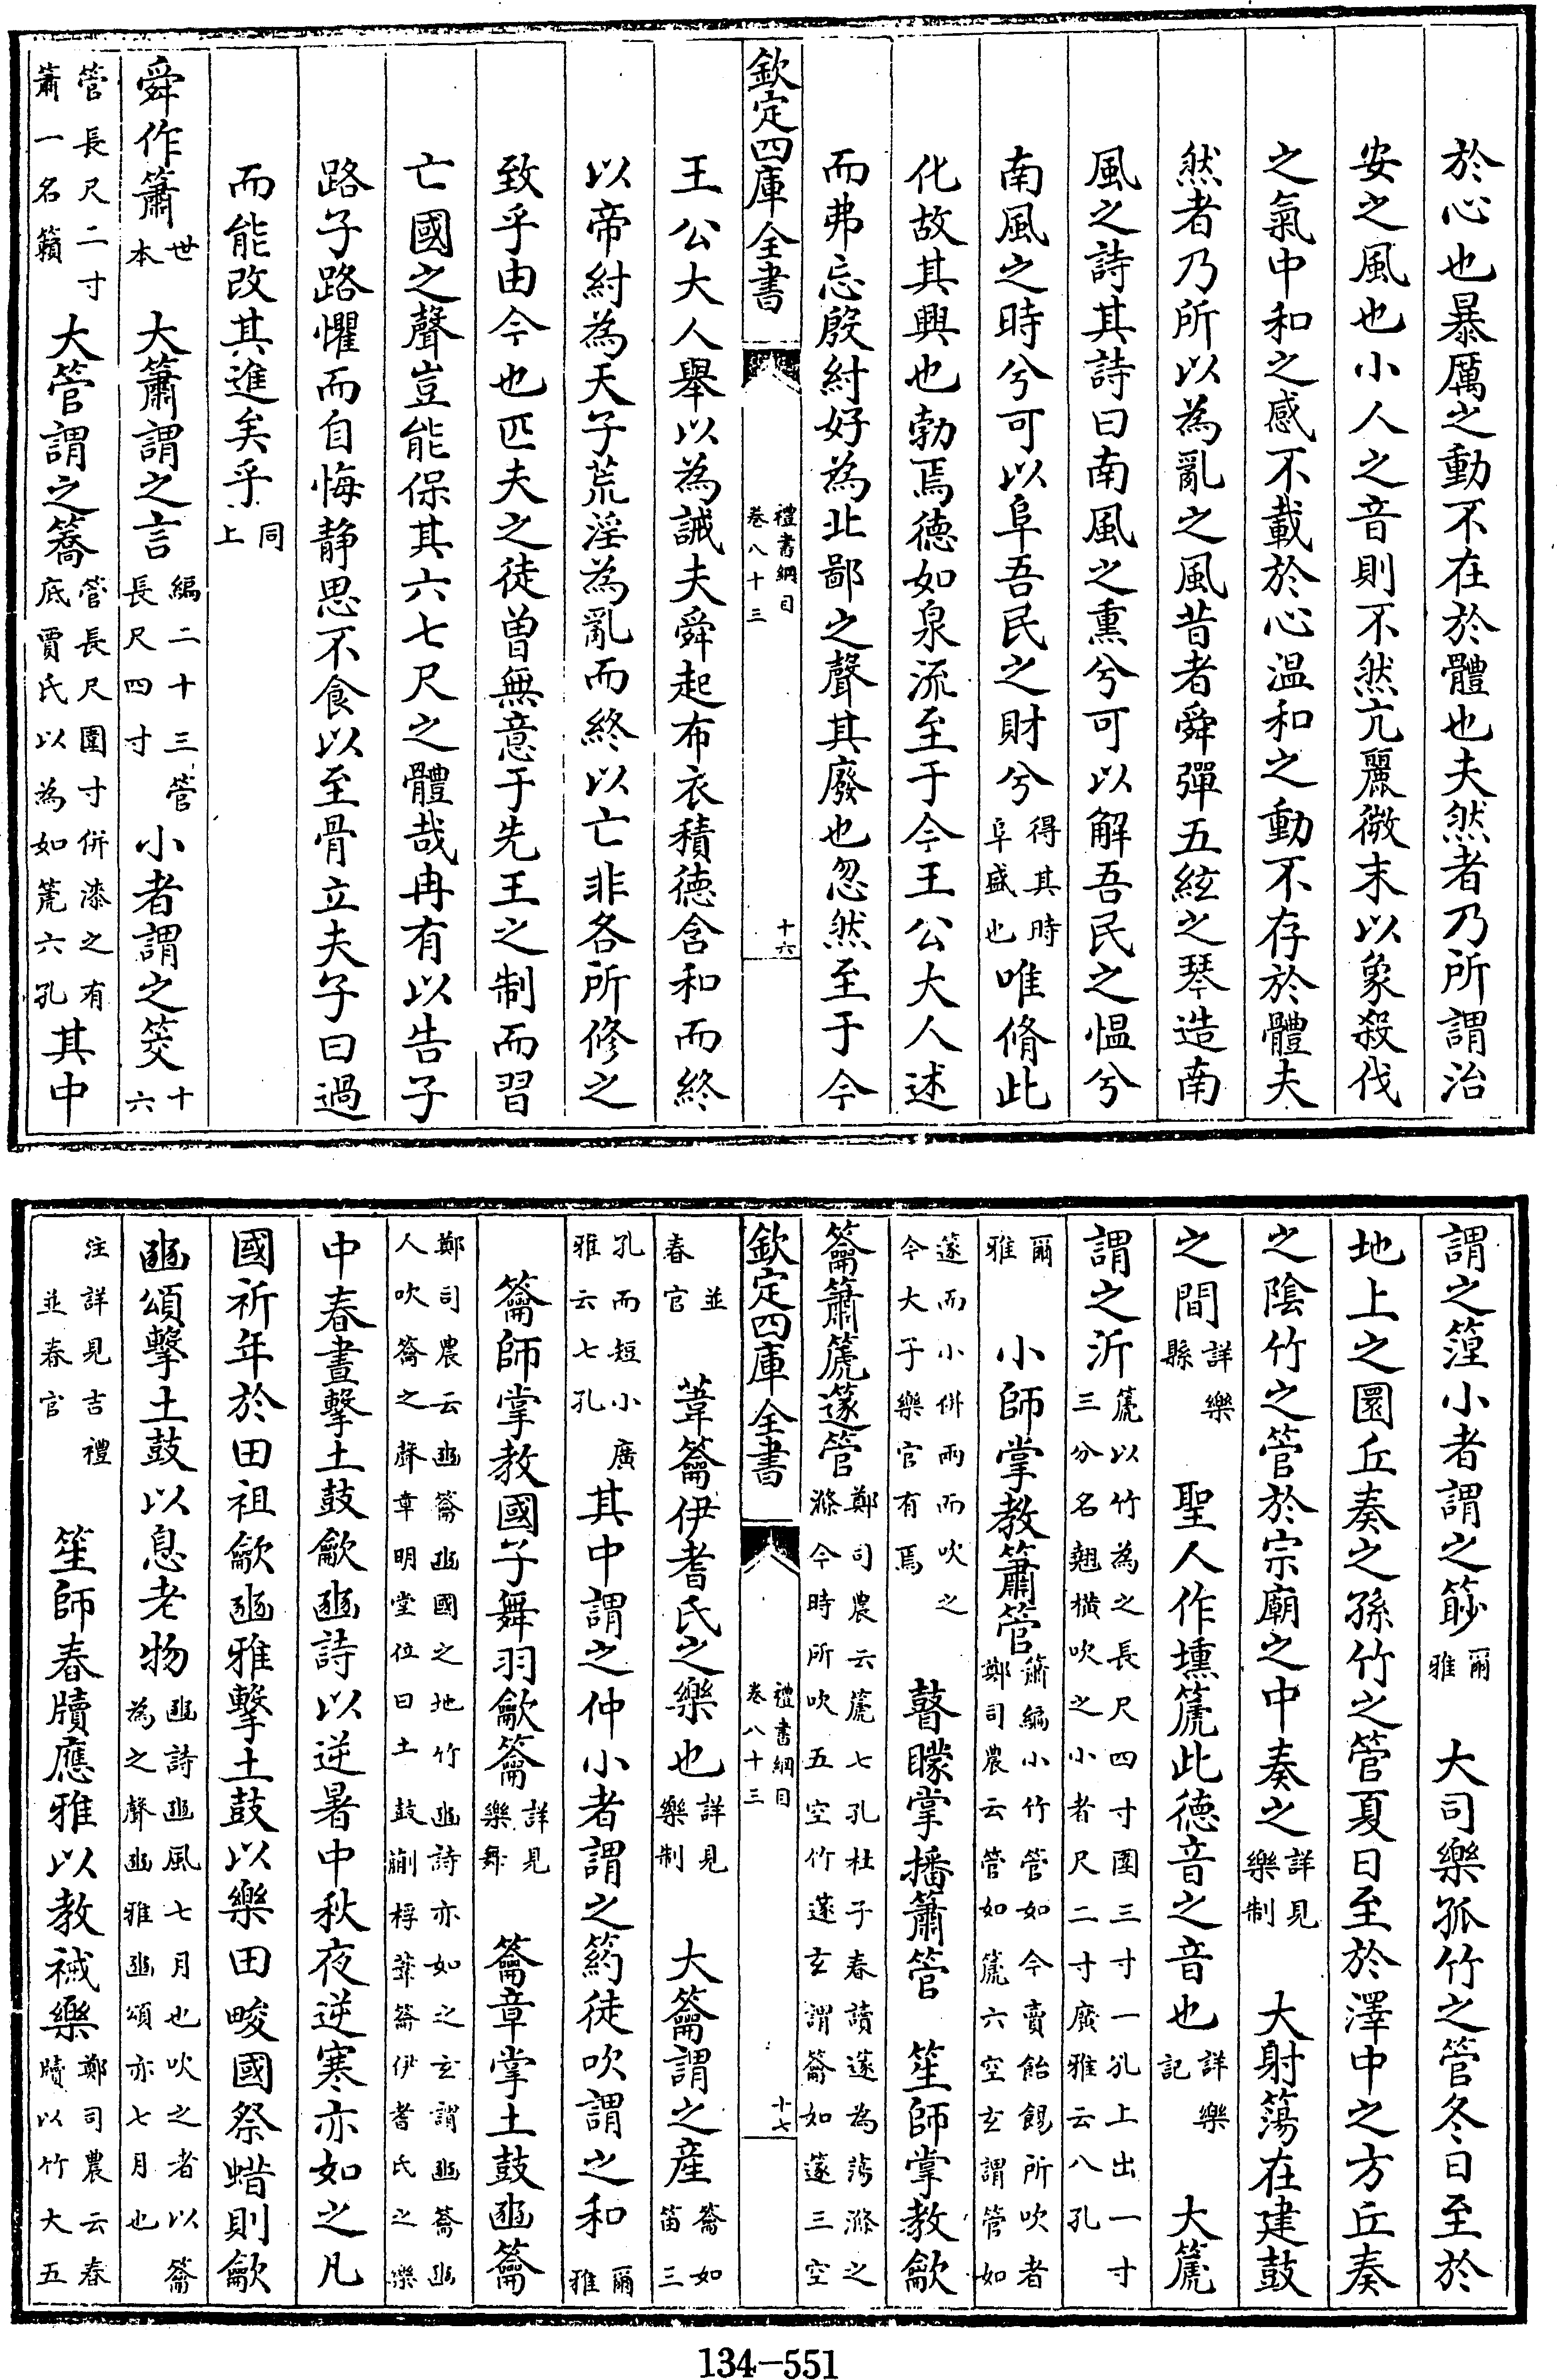 於心也暴厲之動不在於體也夫然者乃所謂治
安之風也小人之音則不然亢麗微末以象殺伐
之氣中和之感不載於心温和之動不存於體夫
然者乃所以為亂之風昔者舜彈五絃之琴造南
風之詩其詩曰南風之熏兮可以解吾民之愠兮
南風之時兮可以阜吾民之財兮得其時阜盛也唯脩此
化故其興也勃焉德如泉流至于今王公大人述
而弗忘殷紂好為北鄙之聲其廢也忽然至于今
欽定四庫全書 禮書綱目卷八十三 十六
王公大人舉以為誡夫舜起布衣積德含和而終
以帝紂為天子荒淫為亂而終以亡非各所修之
致乎由今也匹夫之徒曾無意于先王之制而習
亡國之聲豈能保其六七尺之體哉冉有以告子
路子路懼而自悔静思不食以至骨立夫子曰過
而能改其進矣乎同上
舜作簫世本 大簫謂之言編二十三管長尺四寸小者謂之筊十六
管長尺二寸簫一名籟 大管謂之簥管長尺圍寸併漆之有底賈氏以為如篪六孔其中
謂之篞小者謂之篎爾雅 大司樂孤竹之管冬日至於
地上之圜丘奏之孫竹之管夏日至於澤中之方丘奏
之陰竹之管於宗廟之中奏之詳見樂制 大射簜在建鼓
之間詳樂縣 聖人作壎篪此德音之音也詳樂記 大篪
謂之沂篪以竹為之長尺四寸圍三寸一孔上出一寸三分名翹橫吹之小者尺二寸廣雅云八孔
爾雅 小師掌教簫管簫編小竹管如今賣飴餳所吹者鄭司農云管如篪六空玄謂管如
篴而小併兩而吹之今大子樂官有焉 瞽矇掌播簫管 笙師掌教龡
籥簫篪篴管鄭司農云篪七孔杜子春讀篴為蕩滌之滌今時所吹五空竹篴玄謂籥如篴三空
欽定四庫全書 禮書綱目卷八十三 十七
並春官 葦籥伊耆氏之樂也詳見樂制 大籥謂之產籥如笛三
孔而短小廣雅云七孔其中謂之仲小者謂之箹徒吹謂之和爾雅
籥師掌教國子舞羽龡籥詳見樂舞 籥章掌土鼓豳籥
鄭司農云豳籥豳國之地竹豳詩亦如之玄謂豳籥豳人吹籥之聲章明堂位曰土鼓蒯桴葦籥伊耆氏之樂
中春晝擊土鼓龡豳詩以逆暑中秋夜逆寒亦如之凡
國祈年於田祖龡豳雅擊土鼓以樂田畯國祭蜡則龡
豳頌擊土鼓以息老物豳詩豳風七月也吹之者以籥為之聲豳雅豳頌亦七月也
注詳見吉禮並春官 笙師春牘應雅以教祴樂鄭司農云春牘以竹大五
134-551